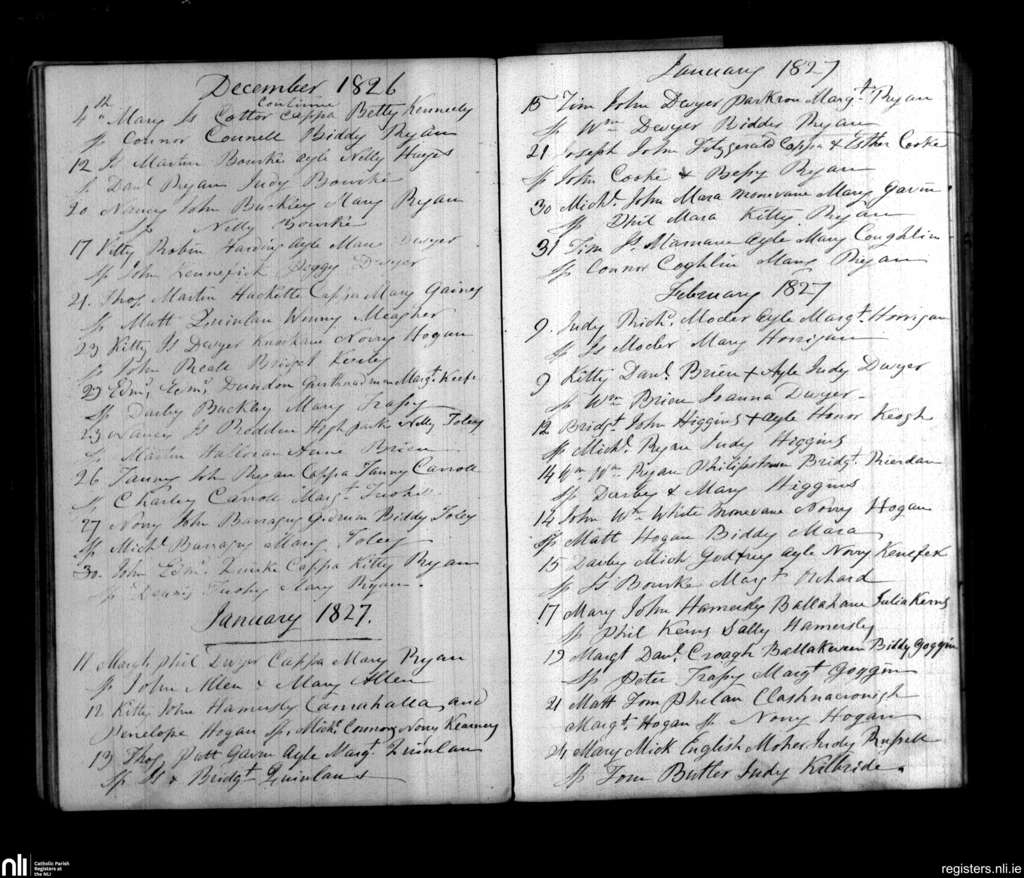 December 1826
Continue
4th Mary Js Cottor Cappa Betty Kennedy
Sp Connor Connell Biddy Ryan
12 Js Martin Bourke Ayle Nelly Hayes
Sp Danl Ryan Judy Bourke
20 Nancy John Buckley Mary Ryan
Sp Nelly Bourke
17 Kitty Robin Harding Ayle Mary Dwyer
Sp John Peggy Dwyer
21. Thos Martin Hackett Cappa Mary Gainey
Sp Matt Quinlan Winny Meagher
23 Kitty Js Dwyer Knockane Nory Hogan
Sp John Beale Bridget
23 Edmd Edmd Dundon Margt Keefe
Sp Darby Buckley Mary Trasy
23 Nancy Js Redden High park Nelly Foley
Sp Martin Halloran Anne Brien
26 Fanny Joh Ryan Cappa Fanny Carroll
Sp Charley Carroll Margt
27 Nory John Barragry Biddy Foley
Sp Michl Barragry Mary Foley
30. John Edmd Quirke Cappa Kitty Ryan
Sp Dennis Mary Ryan
January 1827.
11 Margt Phil Dwyer Cappa Mary Ryan
Sp John Allen & Mary Allen
12 Kitty John Hamersly Carnahalla and
Penelope Hogan Sp. Michl Connors Nory Kearney
13 Thos Patt Gavin Ayle Margt Quinlan
Sp Js & Bridgt Quinlans
January 1827
15 Tim John Dwyer parkroe Margt Ryan
Sp Wm Dwyer Biddy Ryan
21 Joseph John Fitzgerald Cappa & Esther Cooke
Sp John Cooke & Bessy Ryan
30 Michl John Mara Monevane Mary Gavin
Sp Phil Mara Kitty Ryan
31 Tim Js Marnane Ayle Mary Coughlin
Sp Connor Coghlin Mary Ryan
February 1827
9. Judy Richd Mocler Ayle Margt Horrigan
Sp Js Mocler Mary Horrigan
9 Kitty Danl Brien + Ayle Judy Dwyer
Sp Wm Brien Joanna Dwyer
12 Bridgt John Higgins + Ayle Honor Keogh
Sp Michl Ryan Judy Higgins
14 Wm Wm Ryan Philipstown Bridgt Rierdan
Sp Darby & Mary Higgins
14 John Wm White Monevane Nory Hogan
Sp Matt Hogan Biddy Mara
15 Darby Mich Godfrey Ayle Nory Kenefex
Sp Js Bourke Margt Orchard
17 Mary John Hamersly Ballahane Julia Kerns
Sp Phil Kerns Sally Hamersly
19 Margt Danl Croagh Biddy Goggin
Sp Peter Trasy Margt Goggin
21 Matt Tom Phelan Clashnacronagh
Margt Hogan Sp Nory Hogan
24 Mary Mick English Moher Judy Russell
Sp Tom Butler Judy Kilbride.
nli
Catholic Parish
Registers at
the NLI
registers.nli.ie